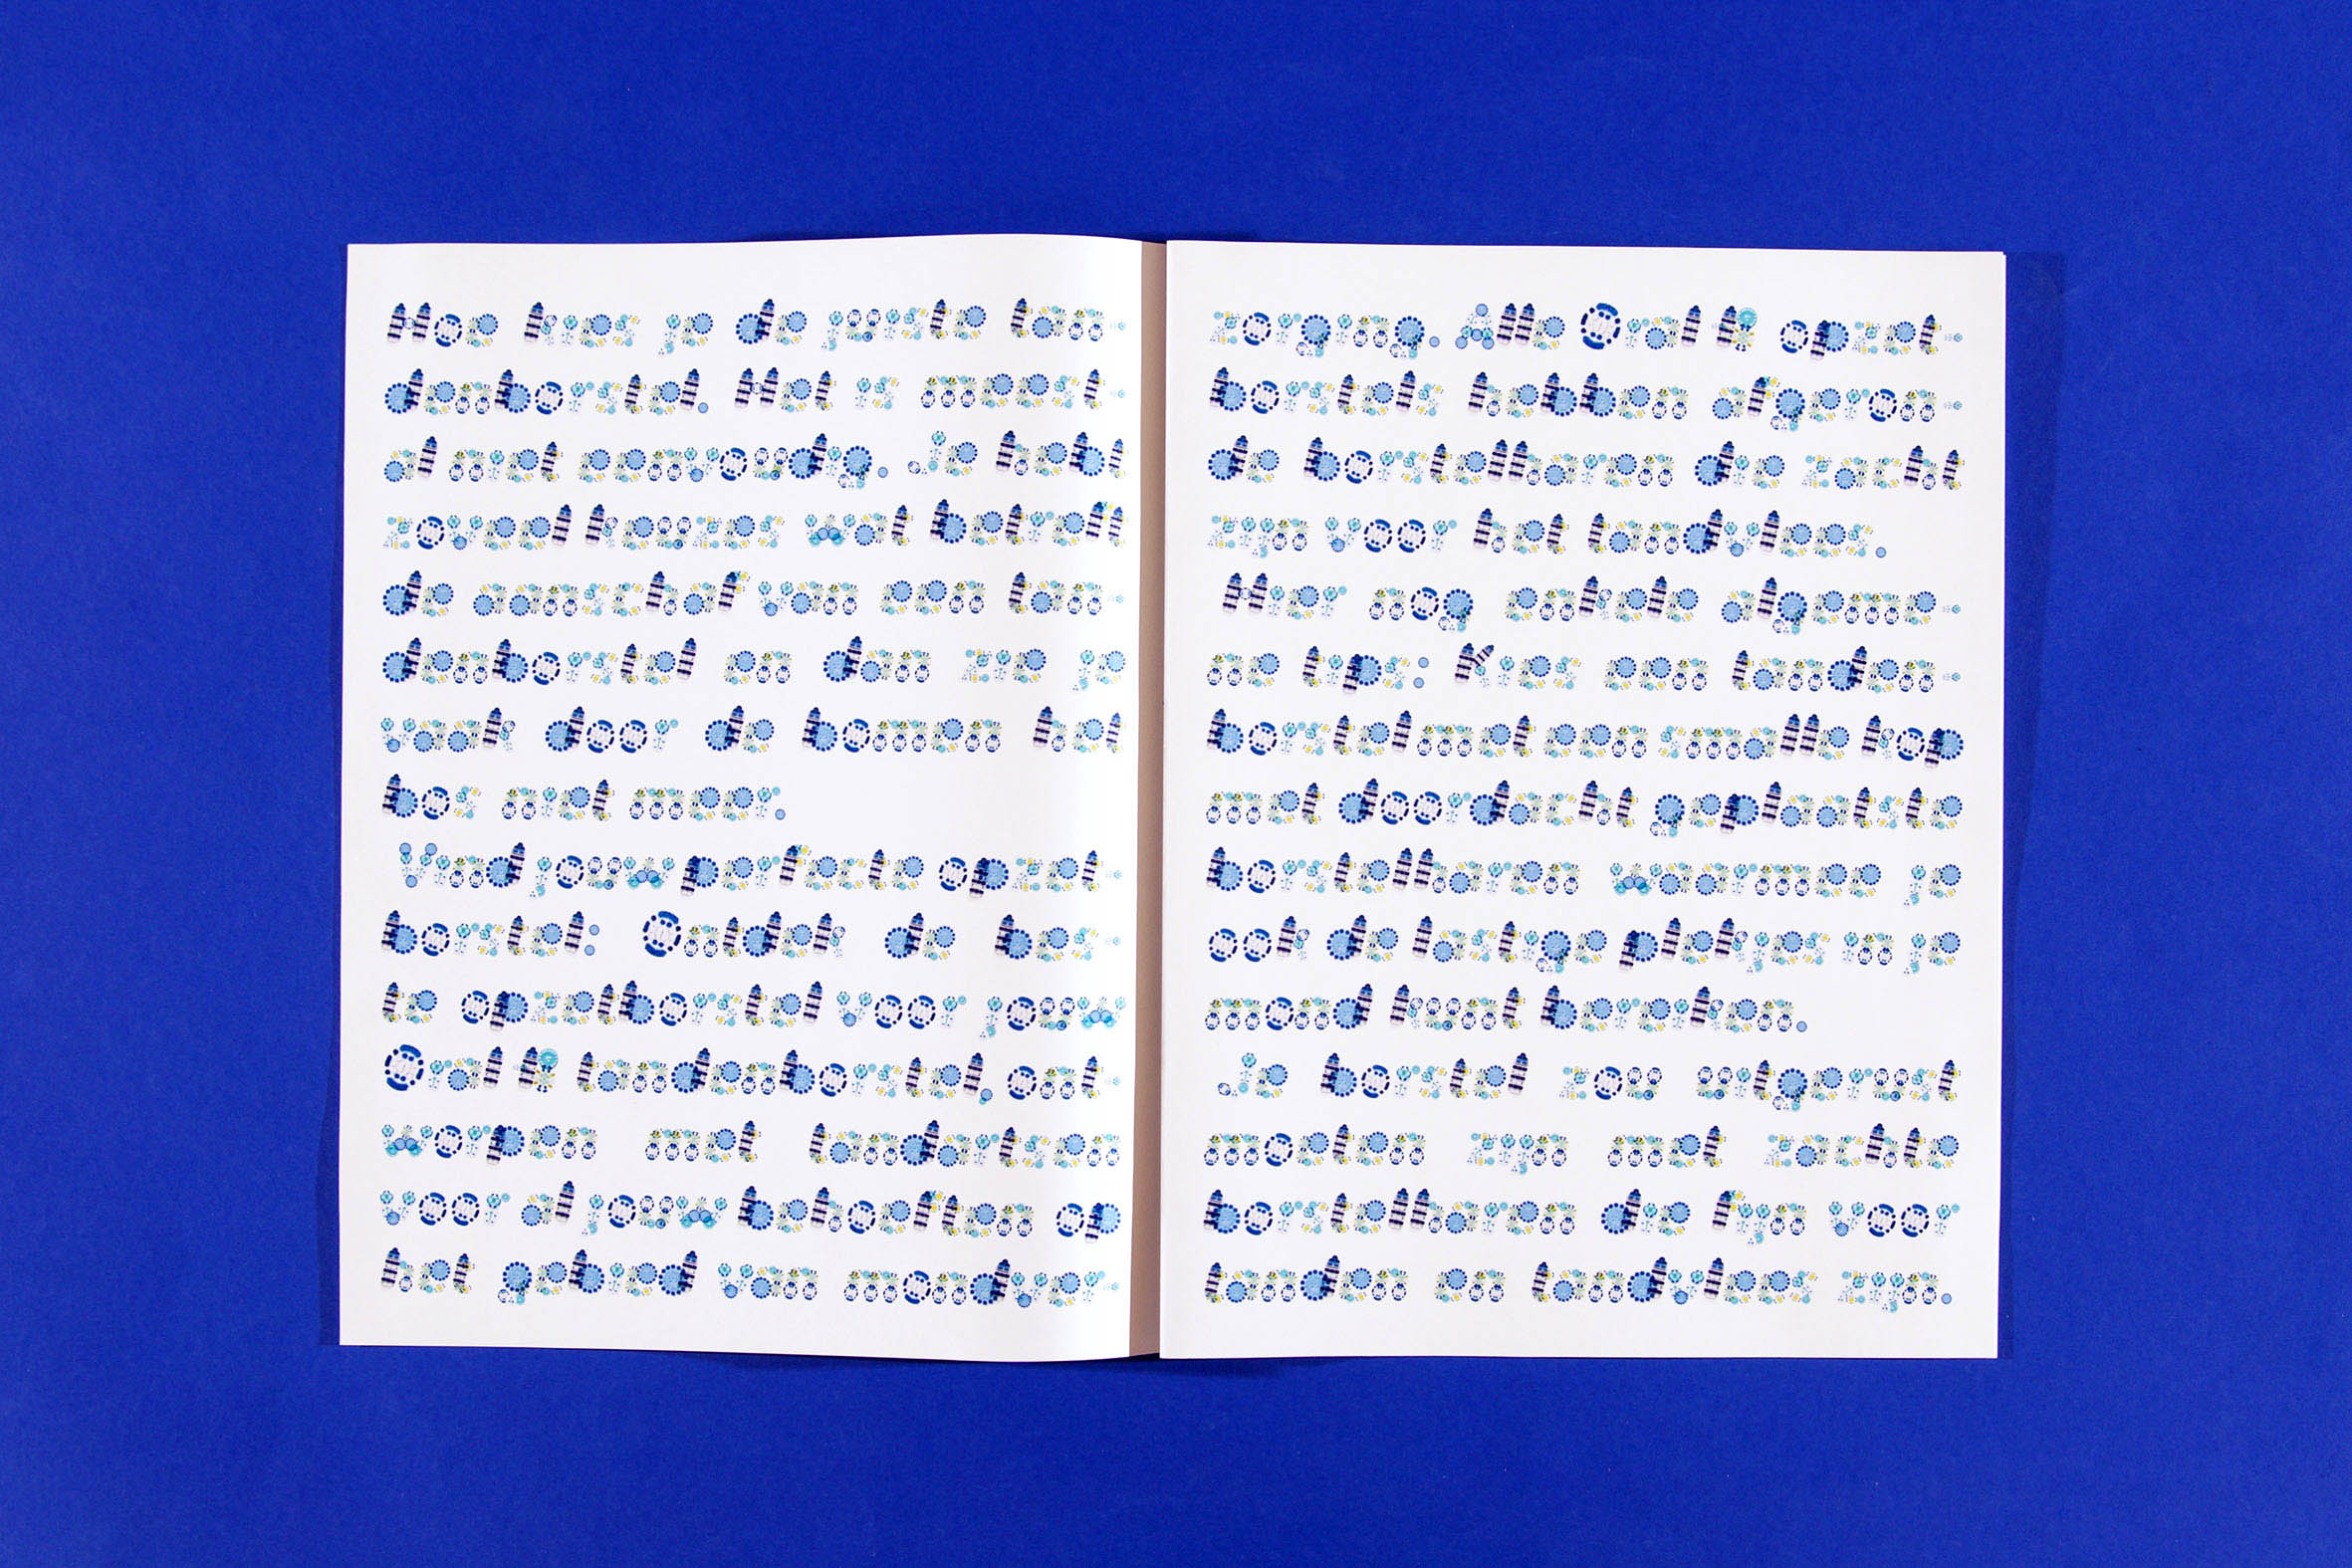 Hoe kies je de juiste tan-
denborstel. Het is meest-
al niet eenvoudig. Je hebt
zoveel keuzes wat betreft
de aanschaf van een tan-
denborstel en dan zie je
vaak door de bomen het
bos niet meer.
Vind jouw perfecte opzet-
borstel: Ontdek de bes-
te opzetborstel voor jouw
Oral B tandenborstel, ont-
worpen met tandartsen
voor al jouw behoeften op
het gebied van mondver-
zorging. Alle Oral B opzet-
borstels hebben afgeron-
de borstelharen die zacht
zijn voor het tandvlees.
Hier nog enkele algeme-
ne tips: Kies een tanden-
borstel met een smalle kop
met doordacht geplaatste
borstelharen waarmee je
ook de lastige plekjes in je
mond kunt bereiken.
Je borstel zou uitgerust
moeten zijn met zachte
borstelharen die fijn voor
tanden en tandvlees zijn.